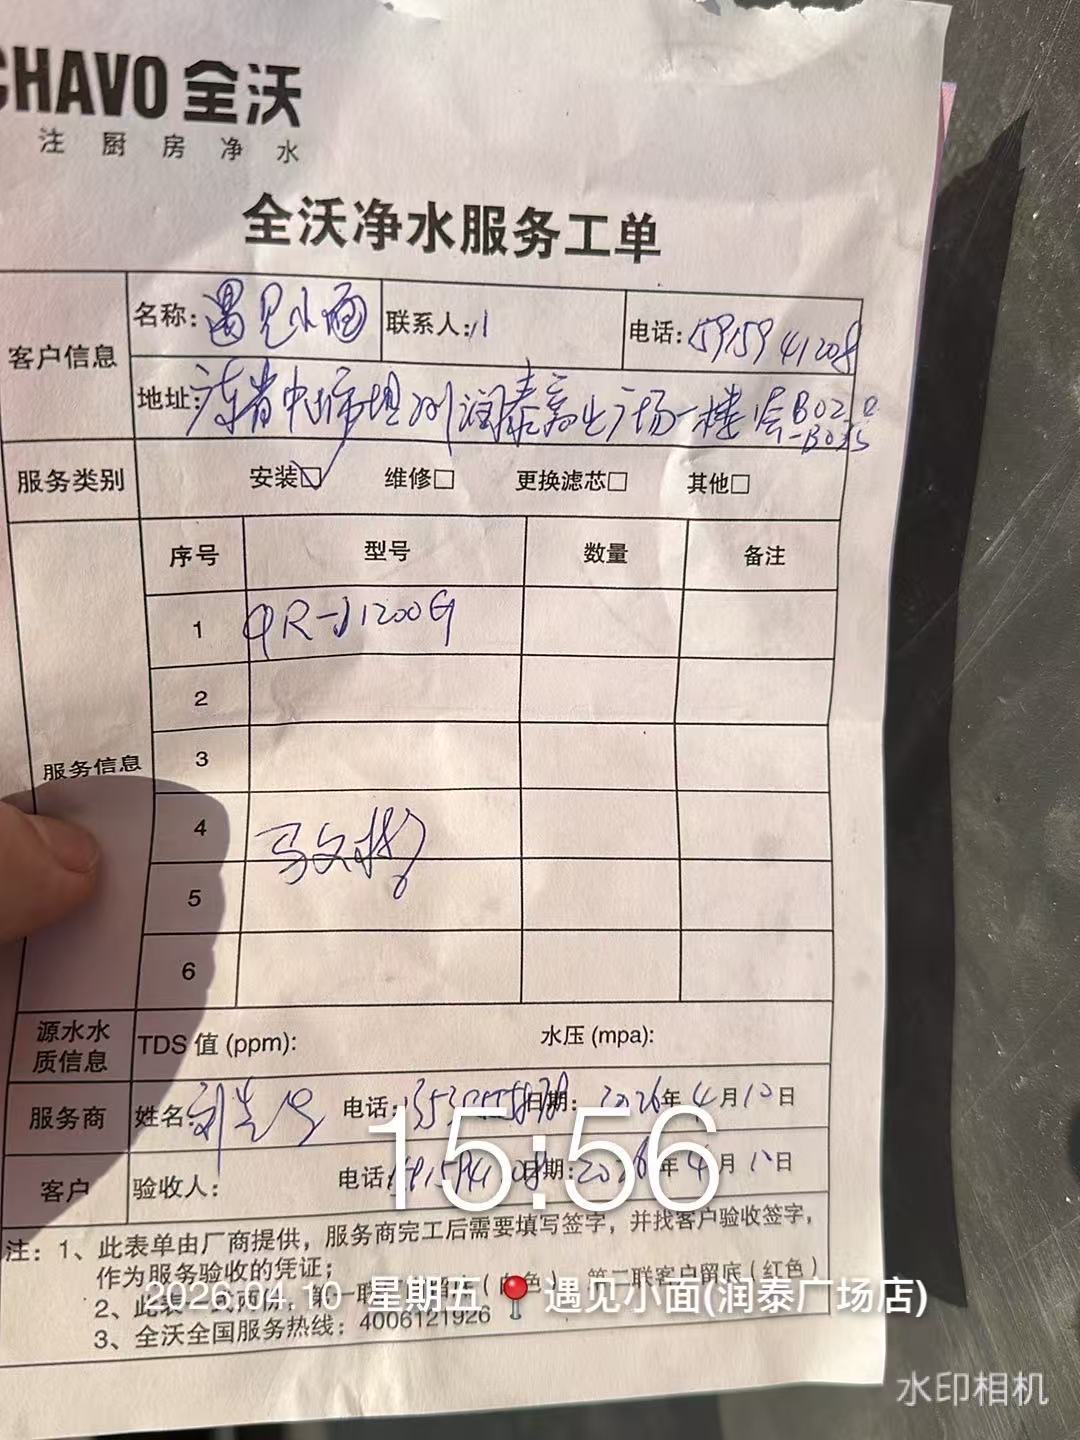 CHAVO 全沃
注厨房净水
全沃净水服务工单
客户信息
名称: 遇见小面 联系人: 电话: 15915941208
地址: 广东省中山市坦洲润泰商业广场一楼
服务类别 安装☑ 维修□ 更换滤芯□ 其他□
服务信息
序号 型号 数量 备注
1 QR-J1200G
2
3
4
5
6
源水水质信息 TDS 值 (ppm): 水压 (mpa):
服务商 姓名: 电话: 日期: 2026年4月10日
客户 验收人: 电话: 日期: 2026年4月10日
15:56
注: 1、此表单由厂商提供，服务商完工后需要填写签字，并找客户验收签字，
作为服务验收的凭证；
2、此表 第一联 (白色) 第二联客户留底 (红色)
3、全沃全国服务热线: 4006121926
2026.04.10 星期五 遇见小面(润泰广场店)
水印相机